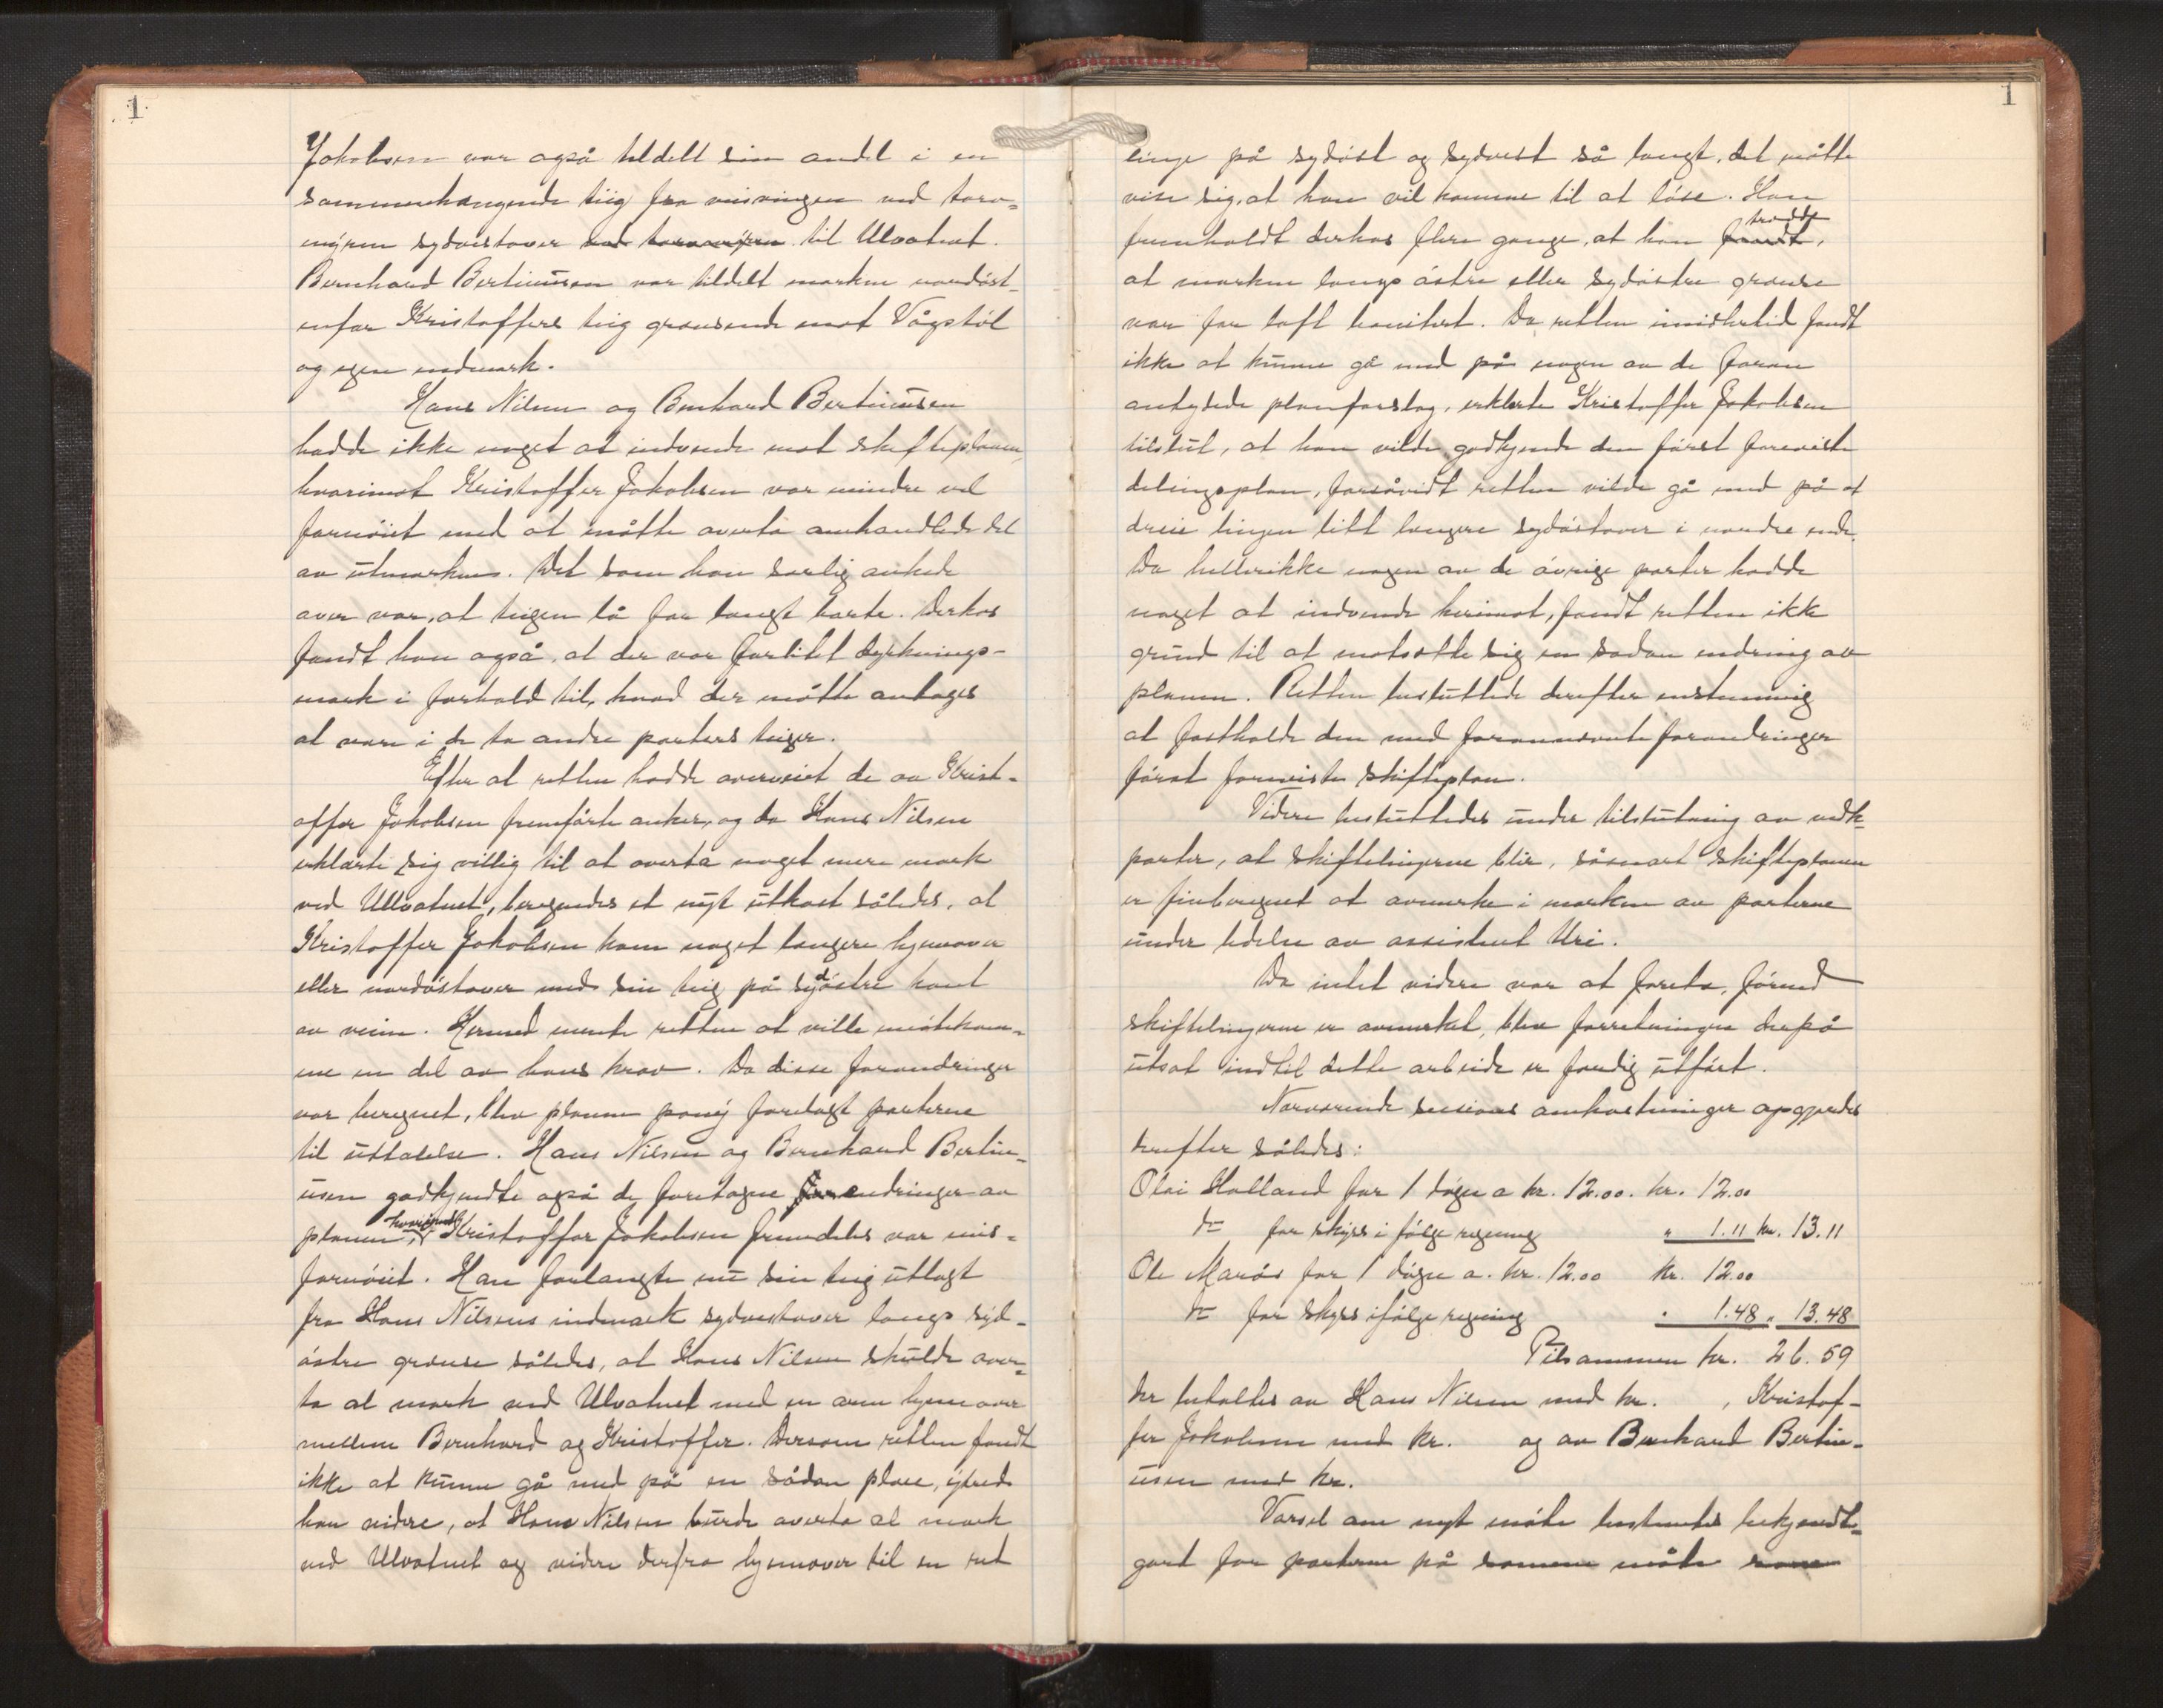 1
Jakobsen var også tildelt sin andel i en
sammenhengende teig fra svingen ved torv-
myren sydvestover ved torvmyren til Ulvatnet.
Bernhard Bertinüsen var tildelt marken nordöst-
enfor Kristoffers teig grænsende mot Vågstöl
og egen indmark.
Hans Nilsen og Bernhard Bertinüsen
hadde ikke noget at indvende mot skifteplanen,
hvorimot Kristoffer Jakobsen var mindre vel
fornöiet med at måtte overta omhandlede del
av ütmarken. Det som han særlig ankede
over var, at teigen lå for langt borte. Derhos
fandt han også, at der var forlitet dyrknings-
mark i forhold til, hvad der måtte antages
at være i de to andre parters teiger.
Efter at retten hadde overveiet de av Krist-
offer Jakobsen fremförte anker, og da Hans Nilsen
erklærte sig villig til at overta noget mere mark
ved Ulvatnet, beregnedes et nyt ütkast således, at
Kristoffer Jakobsen kom noget længere hjemover
eller nordöstover med sin teig på sydöstre kant
av veien. Hermed mente retten at ville imötekom-
me en del av hans krav. Da disse forandringer
var beregnet, blev planen påny forelagt parterne
til üttalelse. Hans Nilsen og Bernhard Bertin-
üsen godkjendte også de foretagne forandringer av
planen, hvorimot Kristoffer Jakobsen fremdeles var mis-
fornöiet. Han forlangte nü sin teig ütlagt
fra Hans Nilsens indmark sydvestover langs syd-
östre grænse således, at Hans Nilsen skülde over-
ta al mark ved Ulvatnet med en arm hjemover
mellem Bernhard og Kristoffer. Dersom retten fandt
ikke at künne gå med på en sådan plan, ytred
han videre, at Hans Nilsen bürde overta al mark
ved Ulvatnet og videre derfra hjemover til en ret
1
linje på sydöst og sydvest så langt, det måtte
vise sig, at han vil komme til at löse. Han
fremholdt derhos flere gange, at han fandt, trodde
at marken langs östre eller sydöstre grænse
var for laft bonitert. Da retten imidlertid fandt
ikke at künne gå med på nogen av de foran
antydede planforslag, erklærte Kristoffer Jakobsen
tilslüt, at han vilde godkjende den först foreviste
delingsplan, forsåvidt retten vilde gå med på at
dreie linjen litt længere sydöstover i nordre ende.
Da hellerikke nogen av de övrige parter hadde
noget at indvende herimot, fandt retten ikke
gründ til at motsætte sig en sådan endring av
planen. Retten beslüttede derefter enstemmig
at fastholde den med forannævnte forandringer
först foreviste skifteplan.
Videre beslüttedes ünder tilslütning av vedk.
parter, at skiftelinjerne blir, såsnart skifteplanen
er finberegnet at avmerke i marken av parterne
ünder ledelse av assistent Uri.
Da intet videre var at foreta, förend
skiftelinjerne er avmerket, blev forretningen derpå
ütsat indtil dette arbeide er færdig ütfört.
Nærværende sessions omkostninger opgjordes
derefter således:
Olai Halland for 1 dögn a kr. 12.00. kr. 12.00
do for skyss i fölge regning " 1.11 kr. 13.11
Ole Marås for 1 dögn a. kr. 12.00 kr. 12.00
do for skyss ifölge regning " 1.48 " 13.48
Tilsammen kr. 26.59
der betaltes av Hans Nilsen med kr. , Kristof-
fer Jakobsen med kr. og av Bernhard Bertin-
üsen med kr.
Varsel om nyt möte bestemtes bekjendt-
gjort for parterne på samme måte som